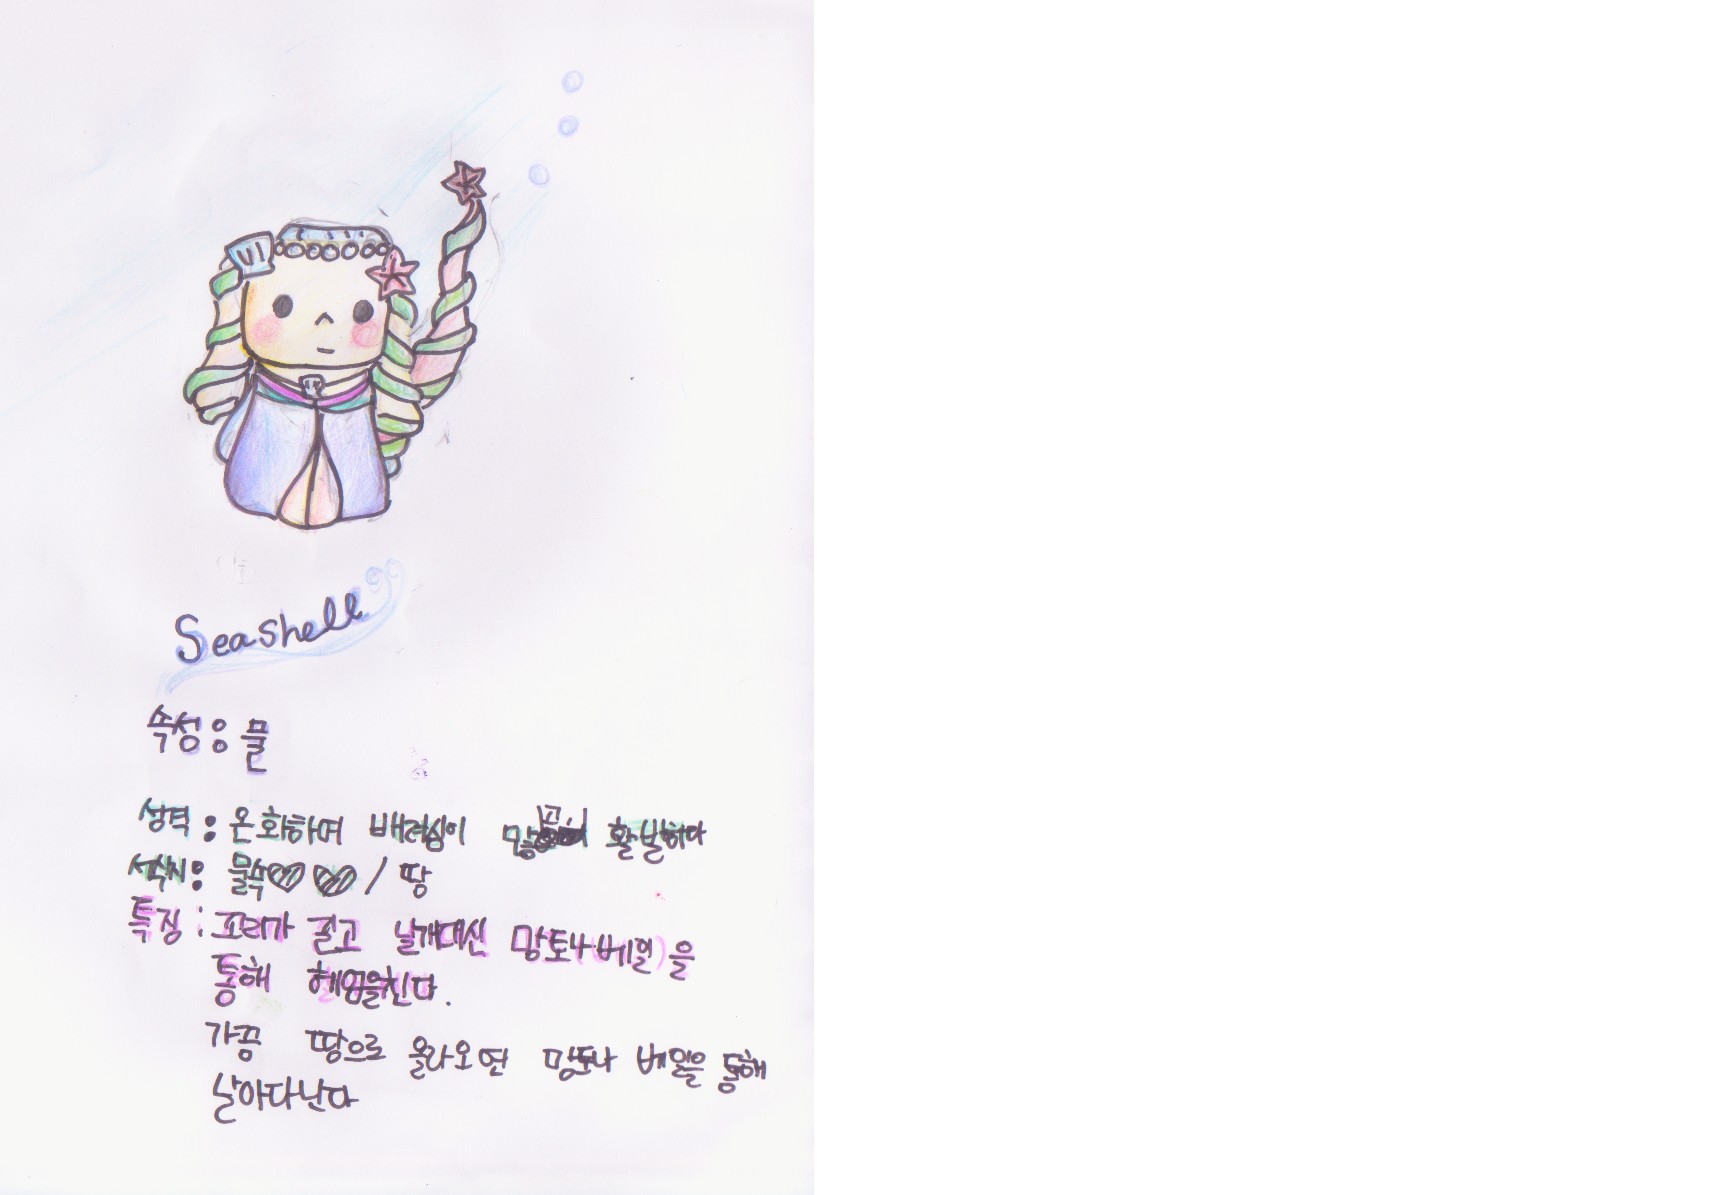 Seashell
속성 : 물
성격 : 온화하며 배려심이 많고 활발하다
서식지 : 물속♡♡ / 땅
특징 : 꼬리가 길고 날개대신 망토나(베일)을
통해 헤엄을친다.
가끔 땅으로 올라오면 망토나 베일을 통해
날아다닌다